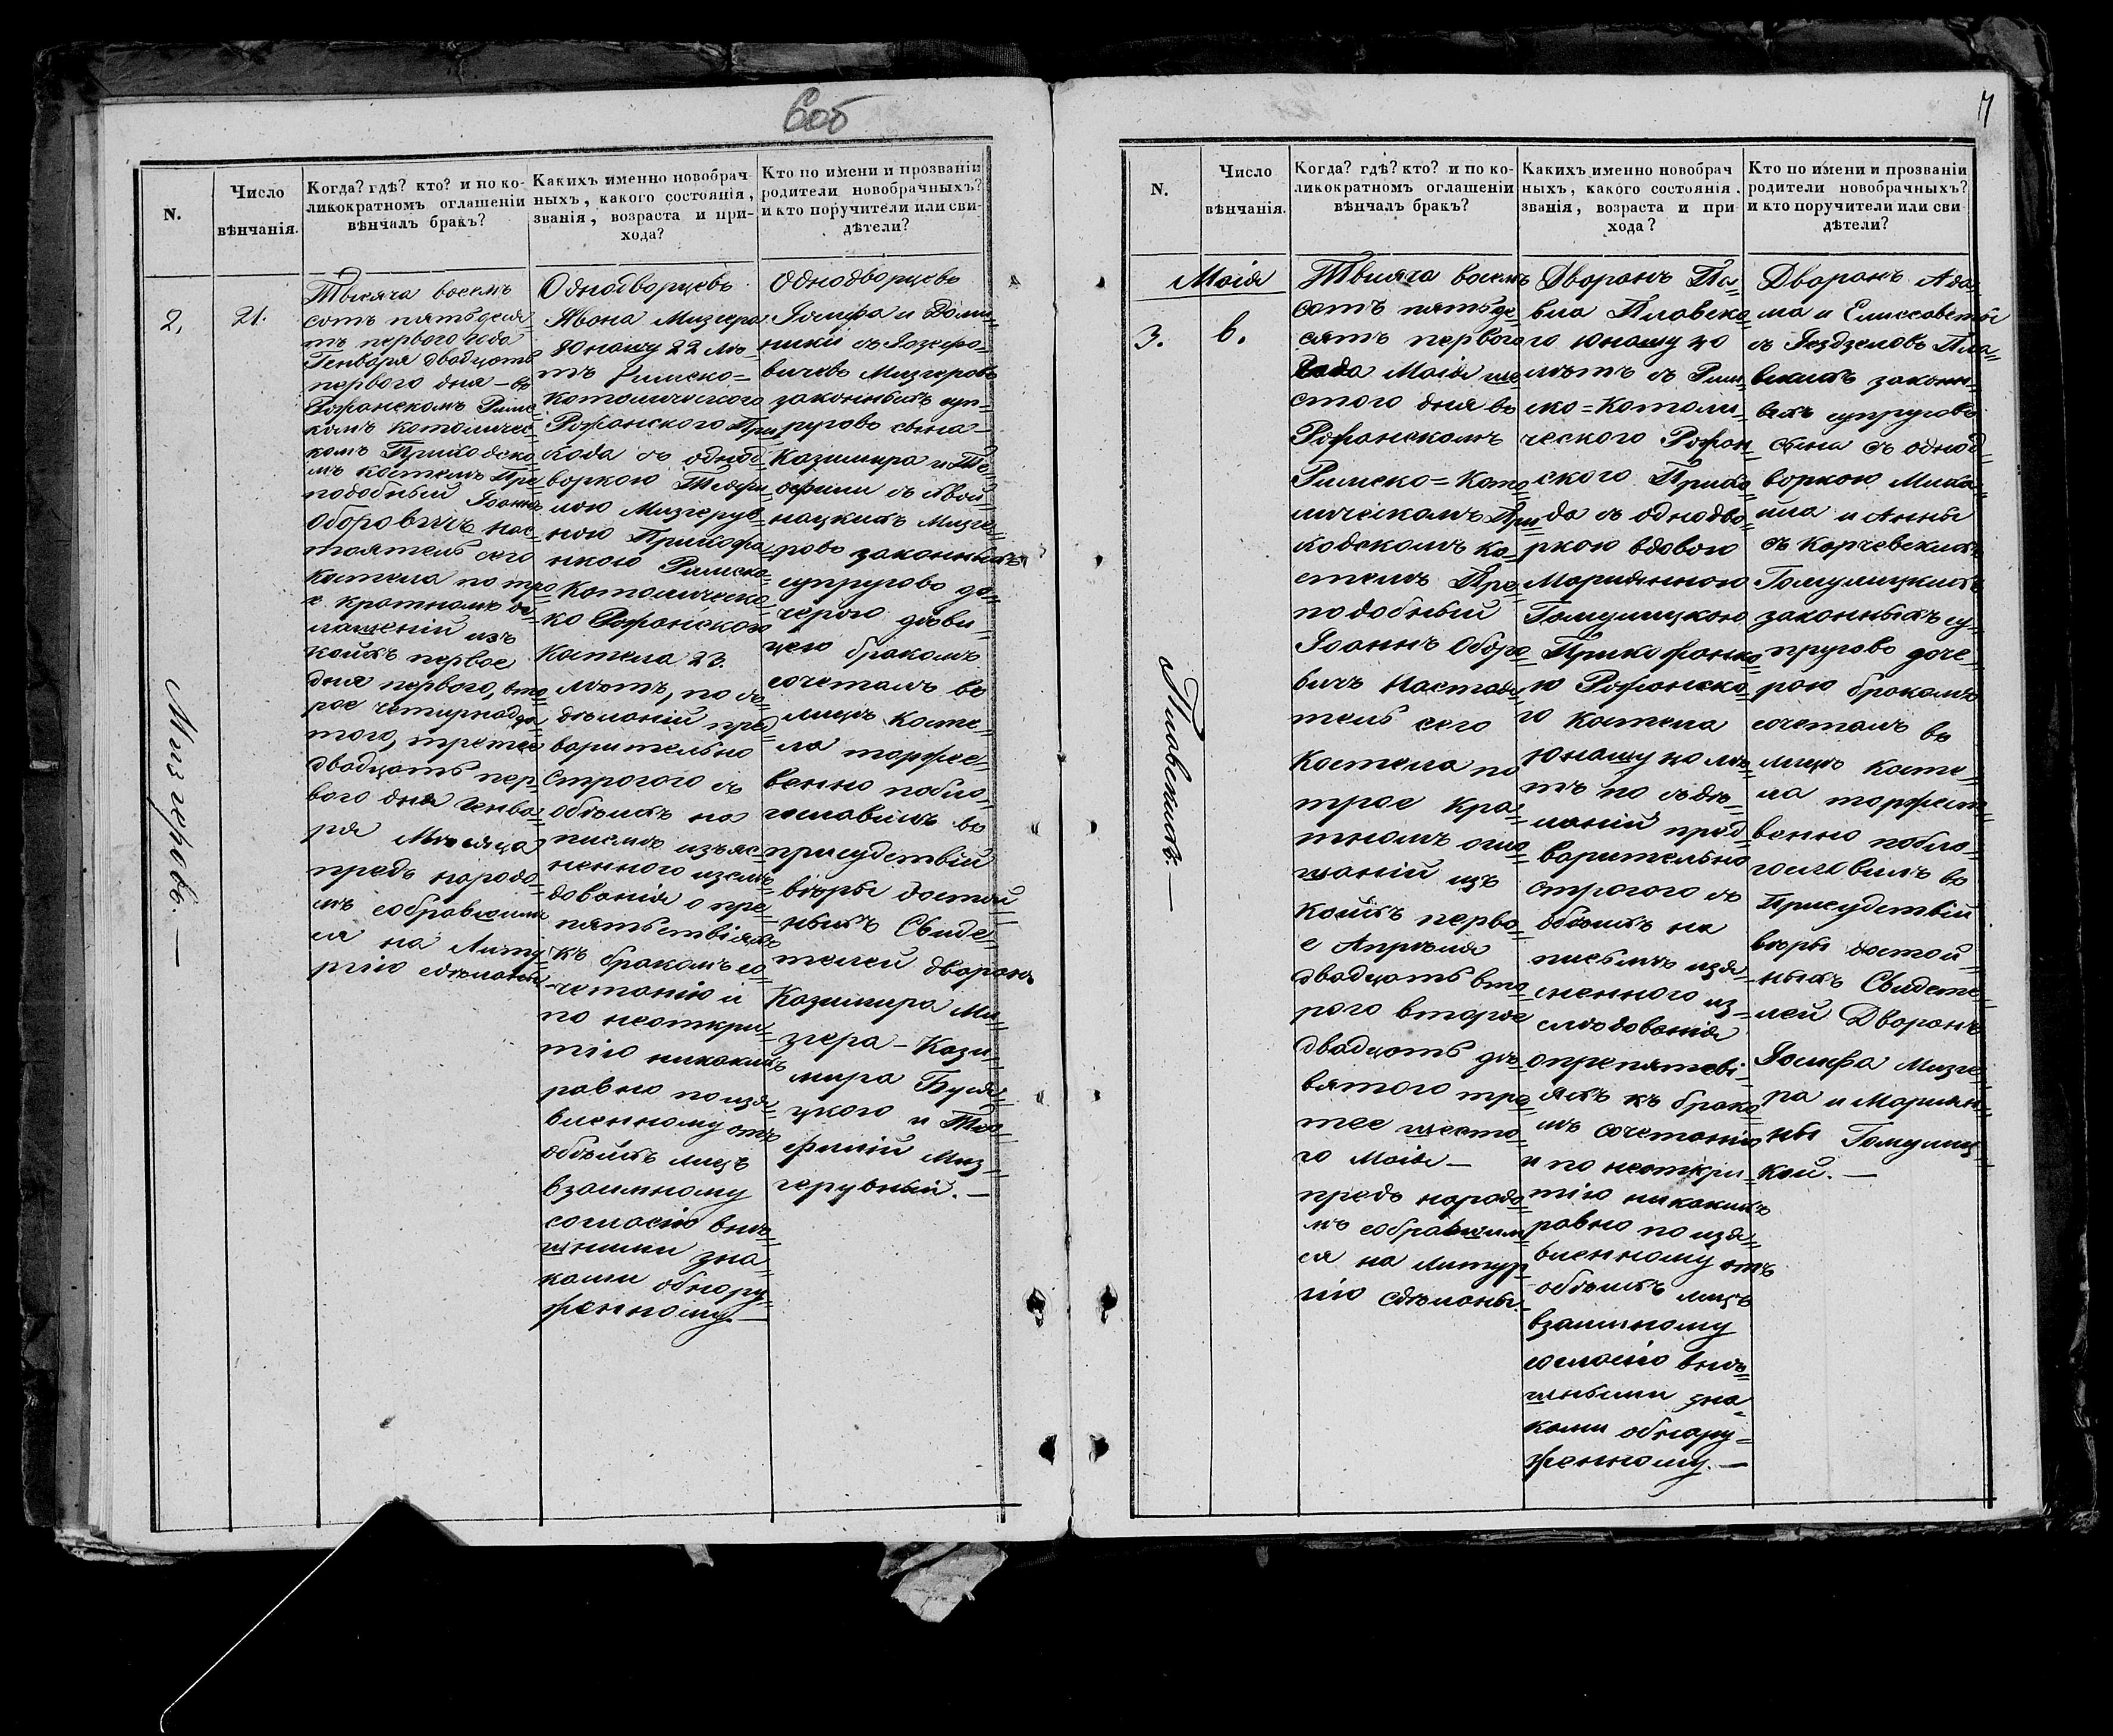 6об
N.
Число
вѣнчанія.
Когда? гдѣ? кто? и по ко-
ликократномъ оглашеніи
вѣнчалъ бракъ?
Какихъ именно новобрач-
ныхъ, какого состоянія,
званія, возраста и при-
хода?
Кто по имени и прозванію
родители новобрачныхъ?
и кто поручители или сви-
дѣтели?
2.
21.
Мизгеровъ. —
Тысяча восемъ
сотъ пятьдеся=
тъ первого года
Генваря двадцать
первого дня — въ
Рожанскомъ Римс=
комъ Католичес=
комъ Приходско=
мъ костелѣ Пре=
подобный Іоаннъ
Оборовичъ Нас=
тоятель сего
Костела по тро=
е кратномъ ог=
лашеній изъ
коихъ первое
дня первого, вто=
рое четырнадца=
того, третее
двадцать пер=
вого дня Генва=
ря Мѣсяца
предъ народо=
мъ собравшим=
ся на Литу=
ргію сдѣланы
Однодворцевъ
Якова Мизгера
Юношу 22 лѣ=
тъ Римско=
Католического
Рожанского При=
хода съ однод=
воркою Теофи=
лею Мизгерув=
ною Прихожа=
нкою Римско=
Католическо=
ко Рожанского
Костела 23.
лѣтъ, по зъ=
дѣланій пред=
варительно
строгого съ
обѣихъ на
письмѣ изъяс=
ненного изслѣ=
дованія о пре=
пятствіяхъ
къ бракомъ со=
четанію и
по неоткры=
тію никакихъ
равно по изъя=
вленному отъ
обѣихъ лицъ
взаимному
согласію внѣ=
шними зна=
ками обнару=
женному. —
Однодворцевъ
Іосифа и Доми=
ники съ Іозефо=
вичевъ Мизгеровъ
законныхъ суп=
руговъ сына —
Казимира и Те=
офили съ Явой=
нацкихъ Мизге=
ровъ законныхъ
супруговъ до=
черою дѣви=
цею бракомъ
сочеталъ въ
лицѣ Косте=
ла торжес=
венно побла=
гославилъ въ
присудствій
вѣры достой=
ныхъ Свидѣ=
телей дворянъ.
Казимира Ми=
згера — Кази=
мира Буся=
цкого и Тео=
филій Миз=
герувный. —
7
N.
Число
вѣнчанія.
Когда? гдѣ? кто? и по ко-
ликократномъ оглашеніи
вѣнчалъ бракъ?
Какихъ именно новобрач
ныхъ, какого состоянія,
званія, возраста и при
хода?
Кто по имени и прозваніи
родители новобрачныхъ?
и кто поручители или сви
дѣтели?
Маія
3.
6.
Плавскихъ. —
Тысяча восемъ
сотъ пятьде=
сятъ первого
Года Маія ше=
стого дня въ
Рожанскомъ
Римско=Като=
лическомъ При=
ходскомъ Ко=
стелѣ Пре=
подобный
Іоаннъ Оборо=
вичъ Настоя=
тель сего
Костела по
трое кра=
тномъ огла=
шаній изъ
коихъ перво=
е Апрѣля
двадцать вто=
рого второе
двадцать де=
вятого тре=
тее шесто=
го Маія —
предъ народо=
мъ собравшим=
ся на Литур=
гію сдѣланы.
Дворянъ Па=
вла Плавско=
го Юношу 40
лѣтъ съ Рим=
ско=Католи=
ческого Рожан=
ского Прихо=
да съ однодво=
ркою вдовою
Маріянною
Гомулицкою
Прихожанко=
ю Рожанско=
го Костела
Юношу 40 лѣ=
тъ по здѣ=
ланій пред=
варительно
строгого съ
обѣихъ на
письмѣ изъя=
сненного из=
слѣдованія
опрепятсві=
яхъ къ брако=
мъ сочетанію
и по неоткры=
тію никакихъ
равно по изъя=
вленному отъ
обѣихъ лицъ
взаимному
согласію внѣ=
шными зна=
ками обнару=
женному. —
Дворянъ Ада=
ма и Елисаветы
съ Іездзеловъ Пла=
вскихъ законн=
ыхъ супруговъ
сына съ однод=
воркою Миха=
ила и Анны
съ Корчевскихъ
Гомулицкихъ
законныхъ су=
пруговъ доче=
рою бракомъ
сочеталъ въ
лицѣ Косте=
ла торжест=
венно побла=
гославилъ въ
Присудствій
вѣры достой=
ныхъ Свидѣте=
лей Дворянъ
Іосифа Мизге=
ра и Маріян=
ны Гомулиц=
кой. —